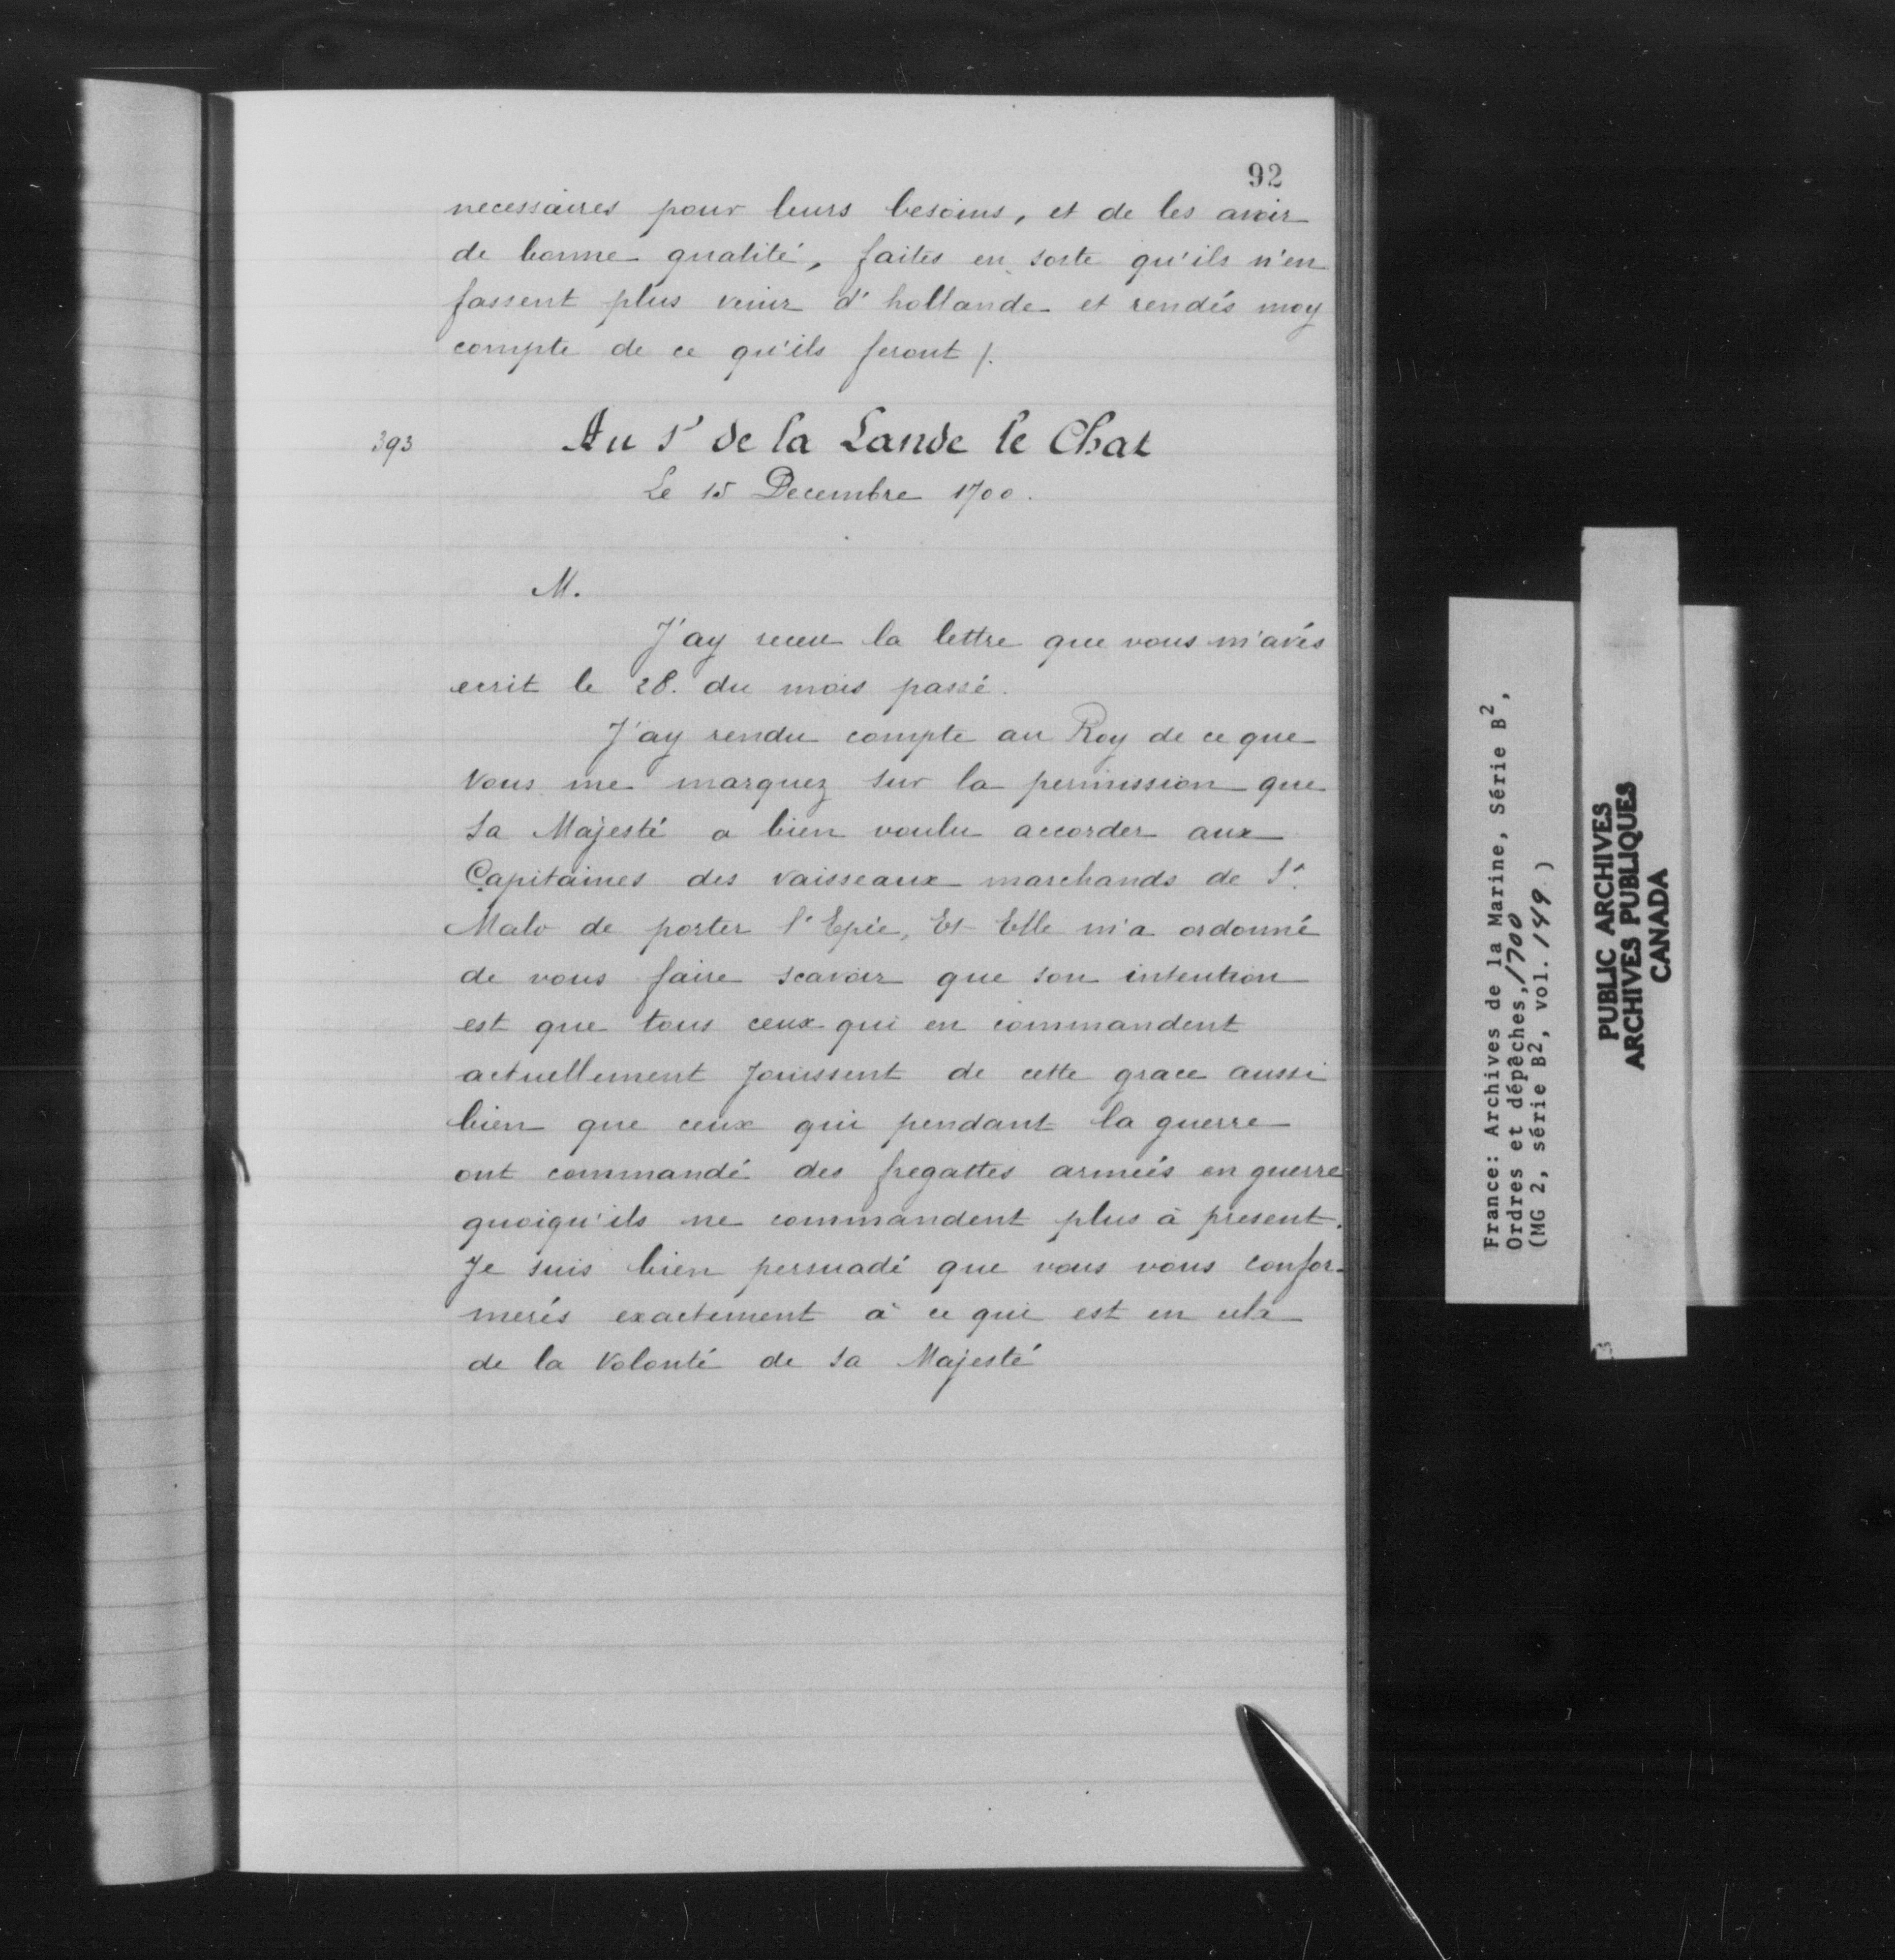 92
necessaires pour leurs besoins, et de les avoir
de bonne qualité, faites en sorte qu'ils n'en
fassent plus venir d'hollande et rendés moy
compte de ce qu'ils feront /.
393
Au Sr de la Lande le Chat
Le 15 Decembre 1700.
M.
J'ay receu la lettre que vous m'avés
ecrit le 28. du mois passé.
J'ay rendu compte au Roy de ce que
vous me marquez sur la permission que
Sa Majesté a bien voulu accorder aux
Capitaines des vaisseaux marchands de St.
Malo de porter l'Epée, Et Elle m'a ordonné
de vous faire scavoir que son intention
est que tous ceux qui en commandent
actuellement Jouissent de cette grace aussi
bien que ceux qui pendant la guerre
ont commandé des fregattes armées en guerre
quoiqu'ils ne commandent plus à present.
Je suis bien persuadé que vous vous confor-
merés exactement à ce qui est en cela
de la Volonté de Sa Majesté
France: Archives de la Marine, Série B2,
Ordres et dépêches, 1700
(MG 2, série B2, vol. 149.)
PUBLIC ARCHIVES
ARCHIVES PUBLIQUES
CANADA